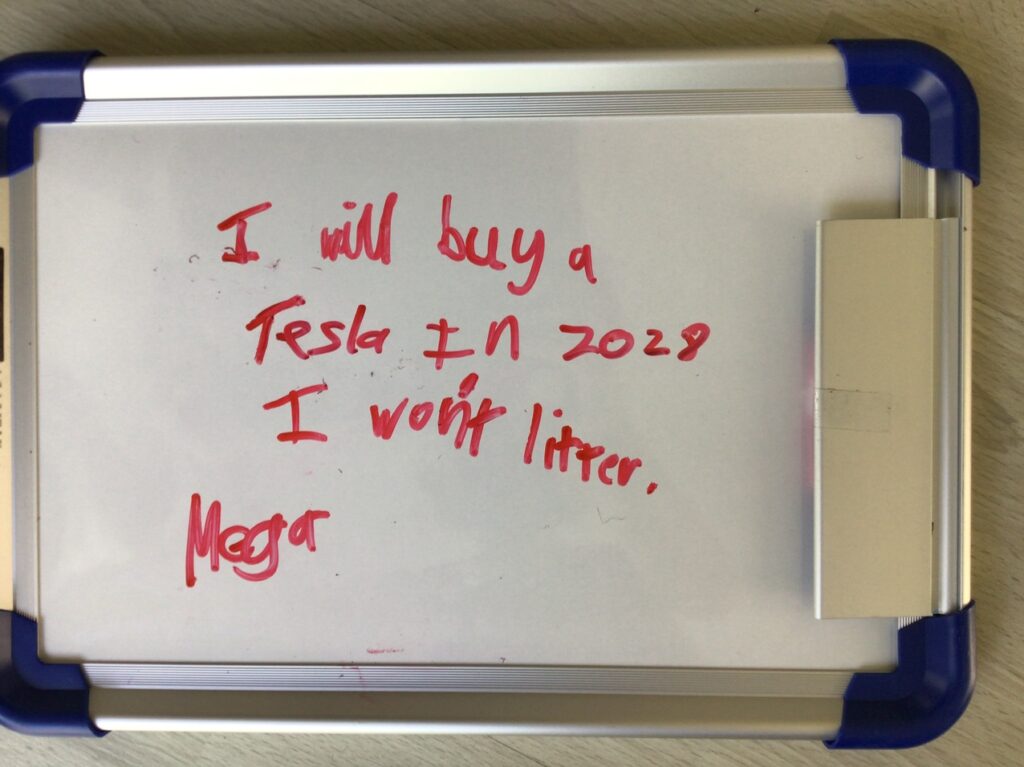 I will buy a
Tesla In 2028
I won't litter.
Mega